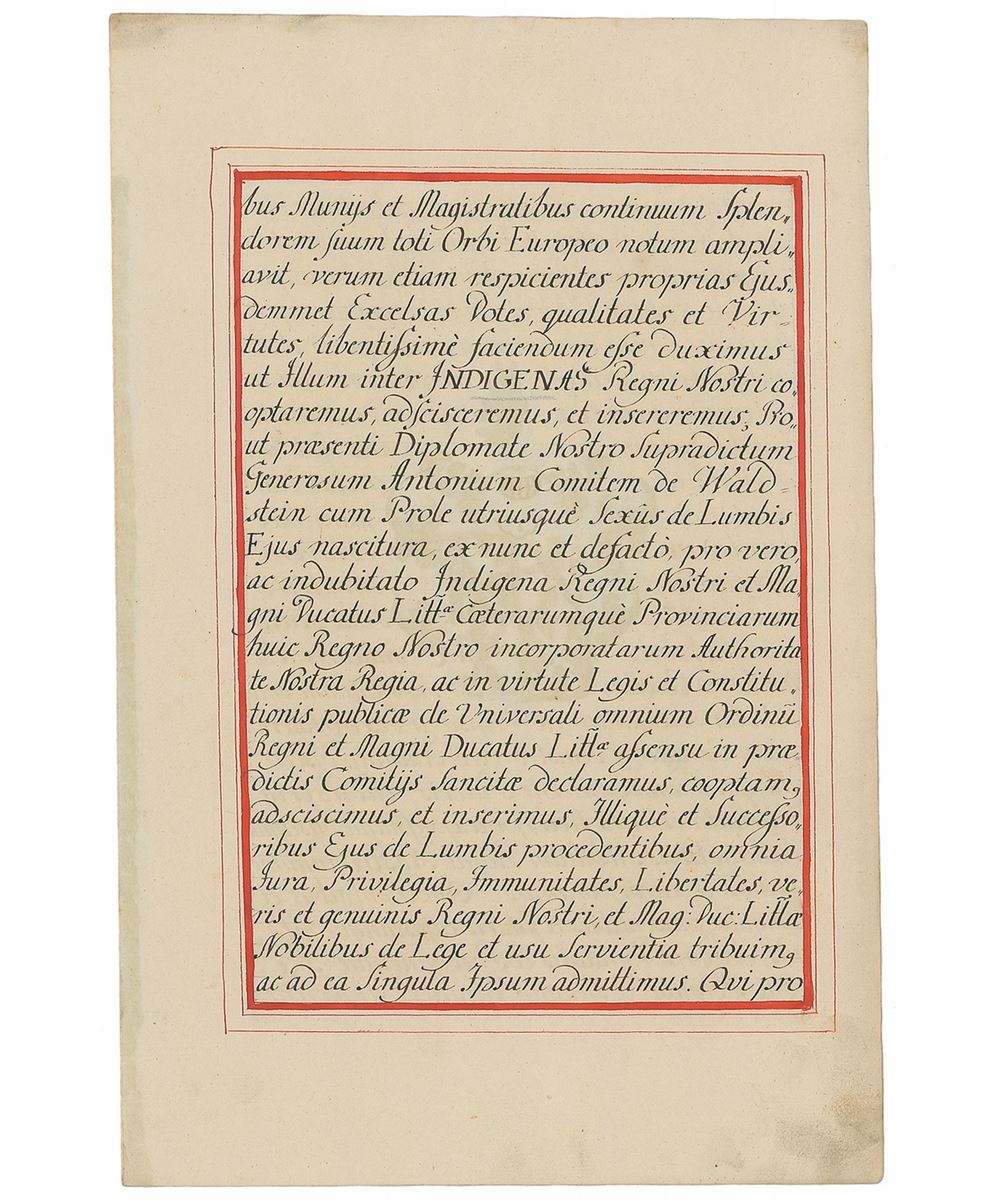 bus Munijs et Magistratibus continuum Splen„
dorem suum toti Orbi Europeo notum ampli„
avit, verum etiam respicientes proprias Ejus„
demmet Excelsas Dotes, qualitates et Vir-
tutes, libentissimè faciendum esse duximus
ut Illum inter INDIGENAS Regni Nostri co„
optaremus, adscisceremus, et insereremus, Pro„
ut præsenti Diplomate Nostro supradictum
Generosum Antonium Comitem de Wald-
stein cum Prole utriusquè Sexûs de Lumbis
Ejus nascitura, ex nunc et defactò, pro vero,
ac indubitato Indigena Regni Nostri et Ma„
gni Ducatus Littæ Cæterarumquè Provinciarum
huic Regno Nostro incorporatarum Authorita
te Nostra Regia, ac in virtute Legis et Constitu„
tionis publicæ de Universali omnium Ordinũ
Regni et Magni Ducatus Littæ assensu in præ
dictis Comitijs Sancitæ declaramus, cooptamꝰ
adsciscimus, et inserimus, Illiquè et Successo„
ribus Ejus de Lumbis procedentibus, omnia
Jura, Privilegia, Immunitates, Libertates, ve„
ris et genuinis Regni Nostri, et Mag: Duc: Littæ
Nobilibus de Lege et usu servientia tribuimꝰ
ac ad ea singula Ipsum admittimus. Qvi pro